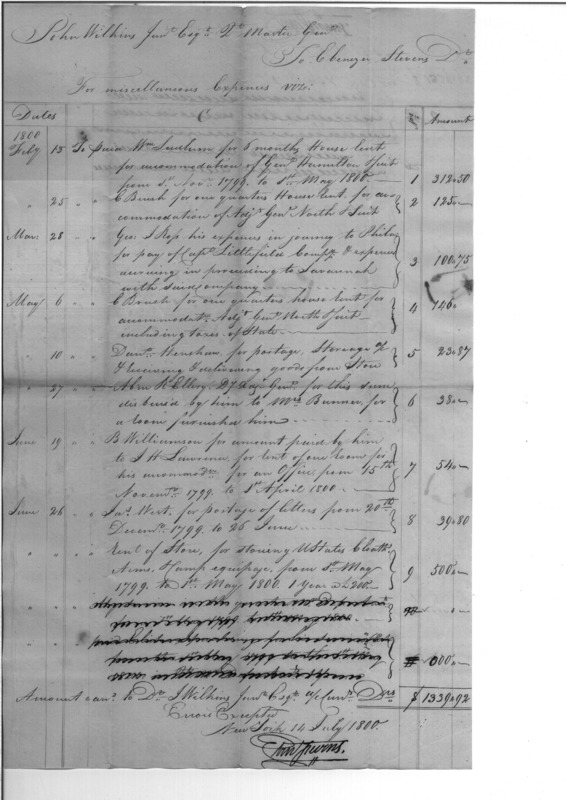 John Wilkins Junr Esqr Qr Master Genl
To Ebenezer Stevens Dr
For miscellaneous Expences viz:
Dates Amount
1800
Feby 15 To paid Wm Ludlum for 6 months House rent
for accommodation of Genl Hamilton & Suit
from 1st Novr 1799 to 1st May 1800 1 312.50
" 25 " " C Brush for one quarters House rent for ac-
commodation of Adjt Genl North & Suit 2 125.—
Mar: 28 " " Geo: J Ross his expences in journey to Phila
for pay of Capt Littlefields Compy & expences
accruing in proceeding to Savannah
with said company 3 100.75
May 6 " " C Brush for one quarters house rent for
accommodatn Adjt Genl North & Suit
including taxes of State 4 146.
10 " " Danl for postage, Storeage &
& receiving & delivering goods from Store 5 23.87
" 27 " " Abm R Ellery for this sum
disbursd by him to Mrs Bunner, for
a room furnished him 6 28.—
June 19 " " B Williamson for amount paid by him
to J H Lawrence, for rent of one room for
his accommodn for an Office from 15th
Novemr 1799 to 1st April 1800 7 54.—
June 26 " " Jas West, for postage of letters from 20th
Decemr 1799 to 26 June 8 39.80
" " " " Rent of Store, for storeing U States Cloathg
Arms, & Camp equipage, from 1st May
1799 to 1st May 1800 1 Year 9 500.—
Amount card to Dr J Wilkins Junr Esqr a/c Currt Drs $ 1339.92
Errors Excepted
New York 14 July 1800.
Eben Stevens.